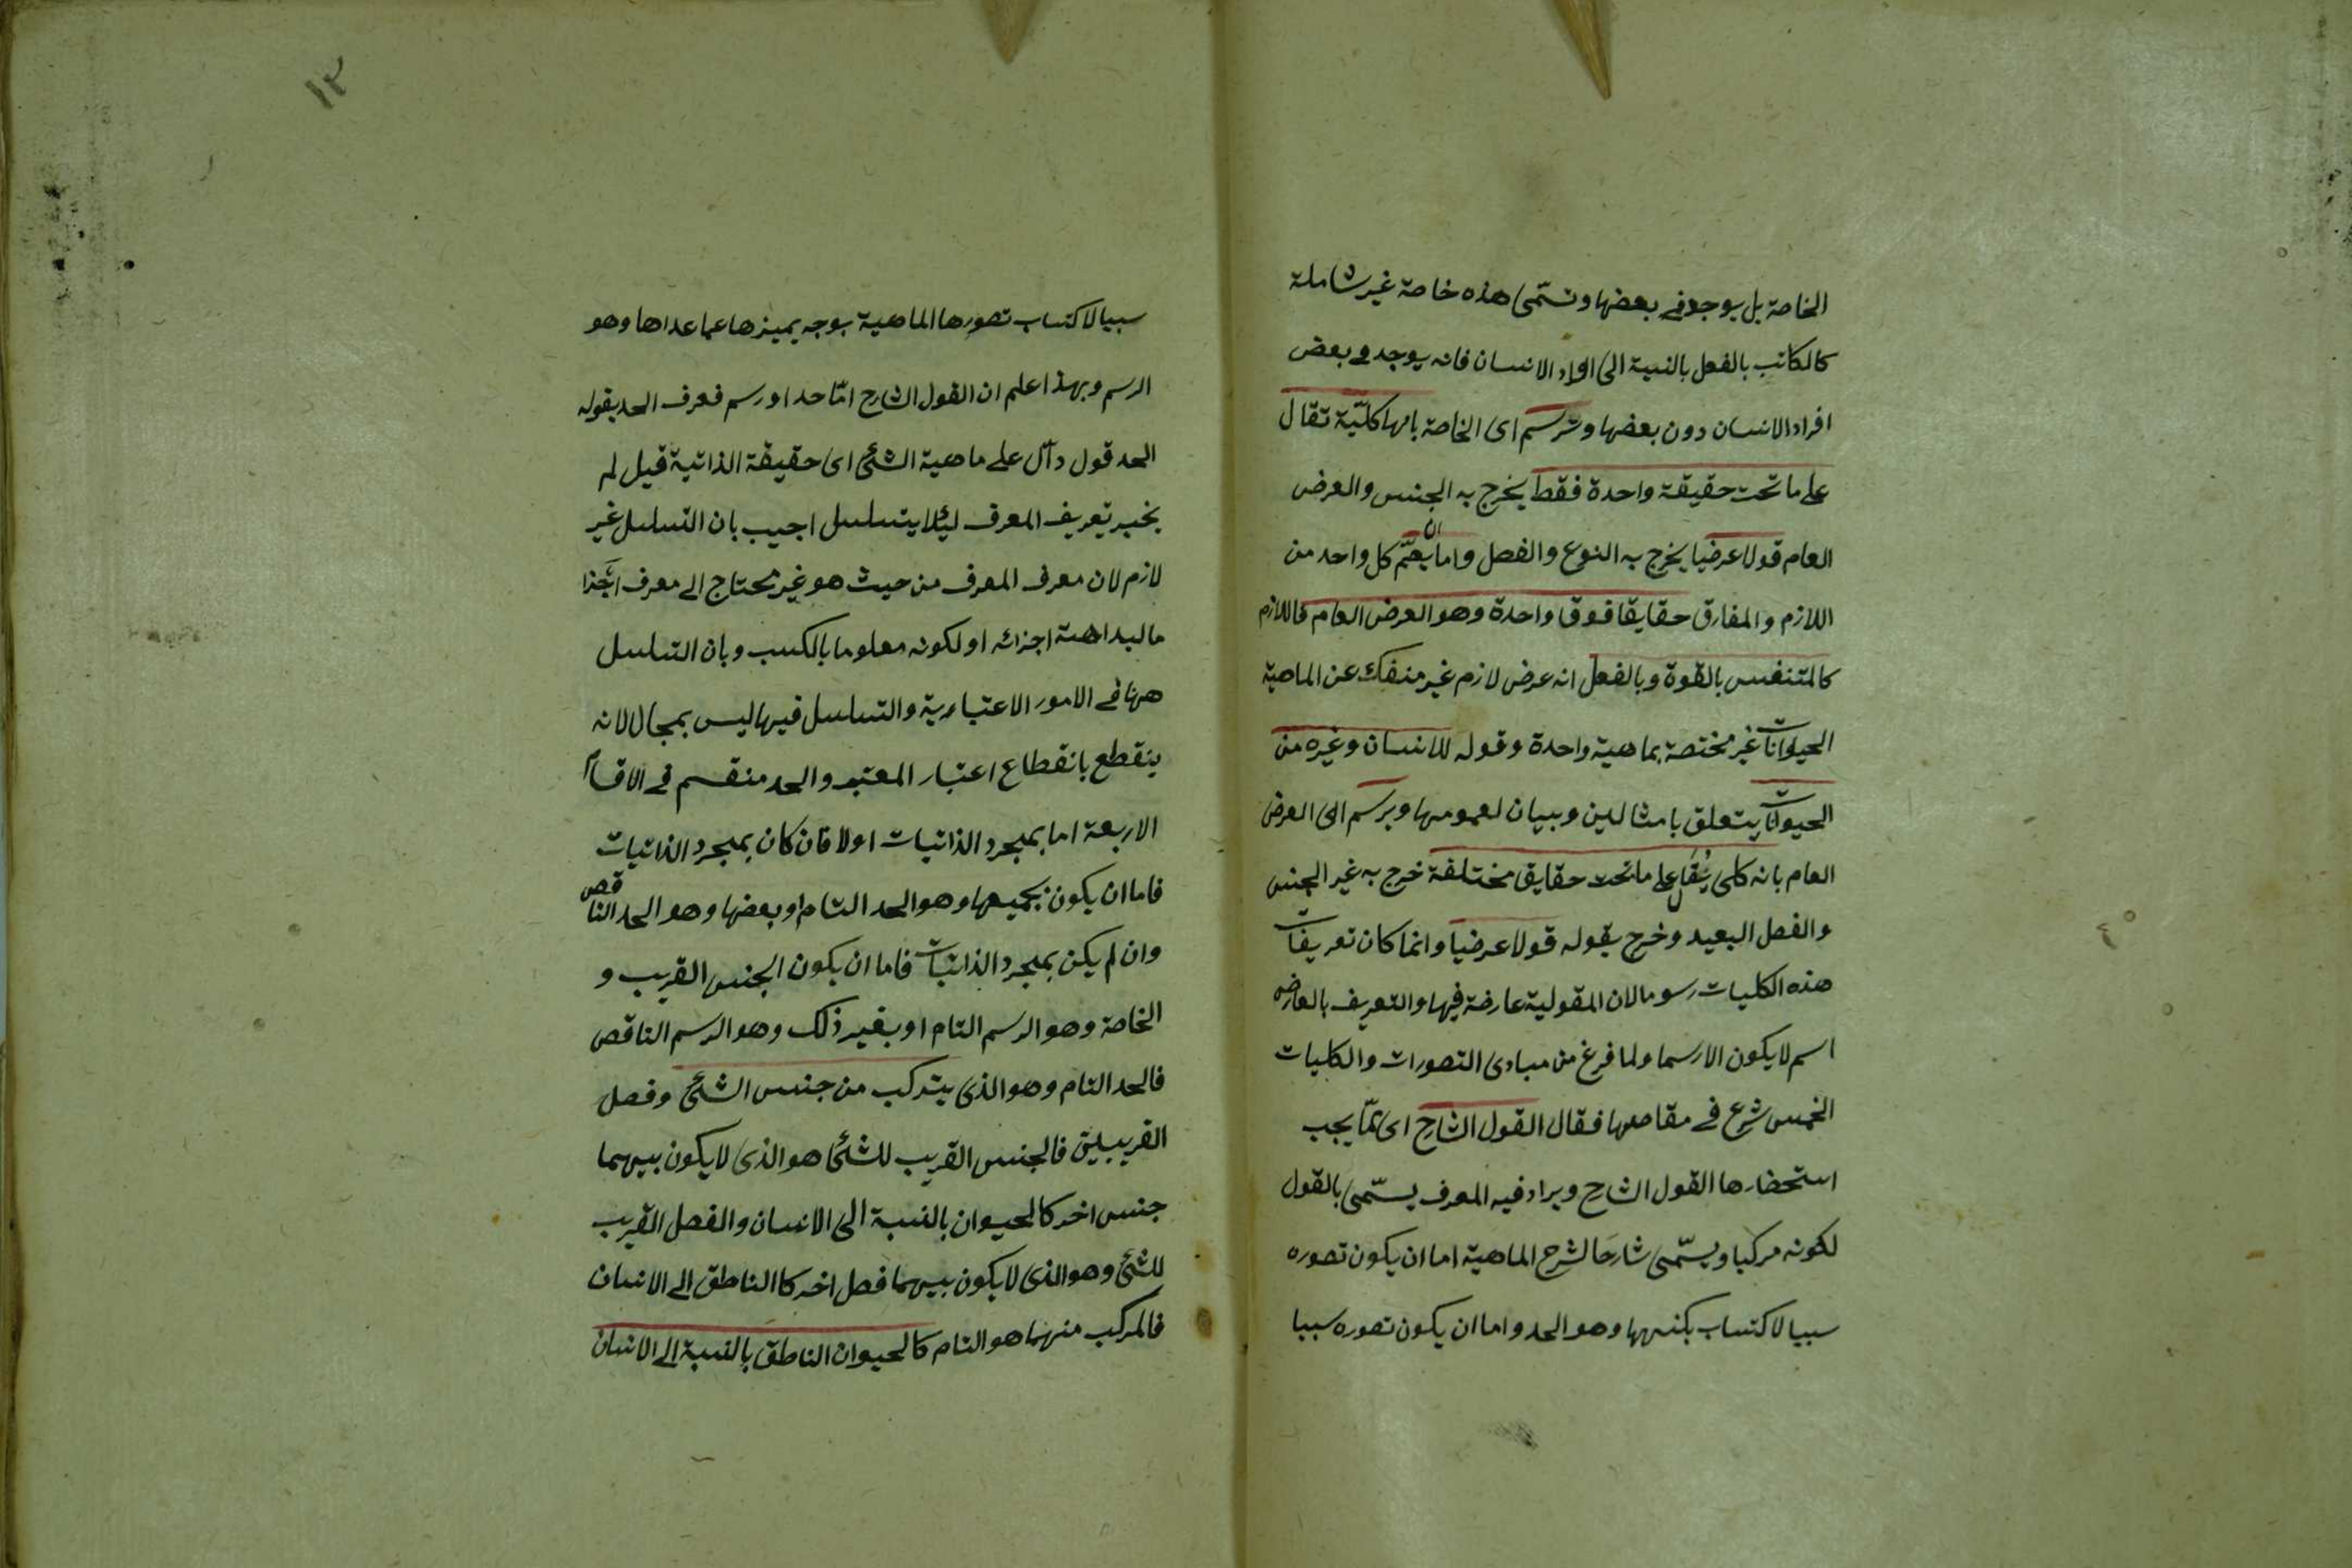 الخاصة بل يوجد في بعضها وتسمّى هذه خاصة غير شاملة
كالكاتب بالفعل بالنسبة الى افراد الانسان فانه يوجد في بعض
افراد الانسان دون بعضها وترسم اى الخاصة بانها كليّة تقال
على ما تحت حقيقة واحدة فقط يخرج به الجنس والعرض
العام قولا عرضيا يخرج به النوع والفصل واما ان يعمّ كل واحد من
اللازم والمفارق حقايقا فوق واحدة وهو العرض العام فاللازم
كالمتنفس بالقوة وبالفعل انه عرض لازم غير منفك عن الماهية
الحيوانات غير مختصة بماهية واحدة وقوله للانسان وغيره من
الحيوانات يتعلق بامثالين وبيان لعمومها ويرسم اى العرض
العام بانه كلى يُقال على ما تحت حقايق مختلفة خرج به غير الجنس
والفصل البعيد وخرج بقوله قولا عرضيا وانما كان تعريفات
هذه الكليات رسوما لان المقولية عارضة فيها والتعريف بالعارض
اسم لا يكون الا رسما ولما فرغ من مبادى التصورات والكليات
الخمس شرع في مقاصها فقال القول الشارح اى ممّا يجب
استحضارها القول الشارح ويرادفيه المعرف يسمّى بالقول
لكونه مركبا ويسمّى شارحًا لشرح الماهية اما ان يكون تصوره
سببا لاكتساب بكنهها وهو الحد واما ان يكون تصوره سببا
١٢
سببا لاكتساب تصورها الماهية بوجه يميزها عما عداها وهو
الرسم وبهذا اعلم ان القول الشارح امّا حد او رسم فعرف الحد بقوله
الحد قول دآل على ماهية الشئ اى حقيقة الذاتية قيل لم
يخبر تعريف المعرف ليئلا يتسلسل اجيب بان التسلسل غير
لازم لان معرف المعرف من حيث هو غير محتاج الى معرف
ما لبداهة اجزائه او لكونه معلوما بالكسب وبان التسلسل
ههنا في الامور الاعتبارية والتسلسل فيها ليس بمجال لانه
ينقطع بانقطاع اعتبار المعتبر والحد منقسم في الاقسام
الاربعة اما بمجرد الذاتيات اولا فان كان بمجرد الذاتيات
فاما ان يكون بجميعها وهو الحد التام او بعضها وهو الحد الناقص
وان لم يكن بمجرد الذاتيات فاما ان يكون الجنس القريب و
الخاصة وهو الرسم التام او بغير ذلك وهو الرسم الناقص
فالحد التام وهو الذى يتركب من جنس الشئ وفصل
القريبين فالجنس القريب للشئ هو الذى لا يكون بينهما
جنس اخر كالحيوان بالنسبة الى الانسان والفصل القريب
للشئ وهو الذى لا يكون بينهما فصل اخر كا الناطق الى الانسان
فالمركب منهما هو التام كالحيوان الناطق بالنسبة الى الانسان